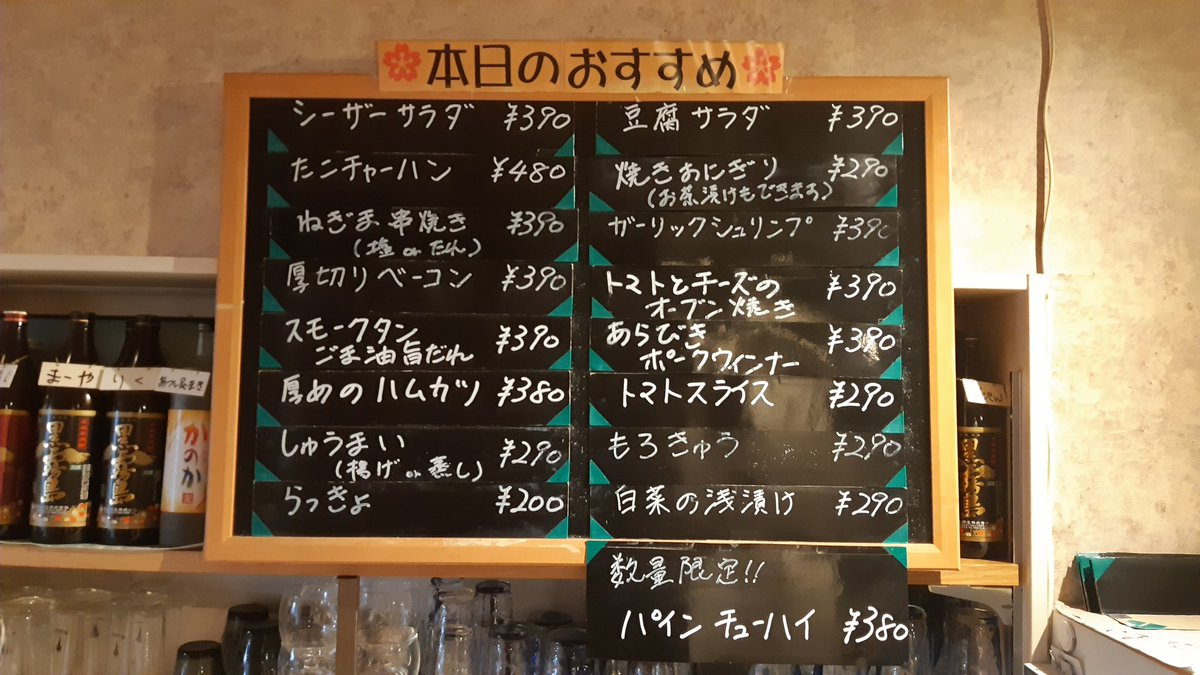 本日のおすすめ
シーザーサラダ ¥390
たニチャーハン ¥480
ねぎま串焼き ¥390
(塩 or たれ)
厚切りベーコン ¥390
スモークタン ¥390
ごま油旨だれ
厚めのハムカツ ¥380
しゅうまい ¥290
(揚げ or 蒸し)
らっきょ ¥200
豆腐サラダ ¥390
焼きおにぎり ¥290
(お茶漬けもできます)
ガーリックシュリンプ ¥390
トマトとチーズの ¥390
オーブン焼き
あらびき ¥390
ポークウィンナー
トマトスライス ¥290
もろきゅう ¥290
白菜の浅漬け ¥290
数量限定!!
パインチューハイ ¥380
まーや
りく
黒霧島
黒霧島
かのか